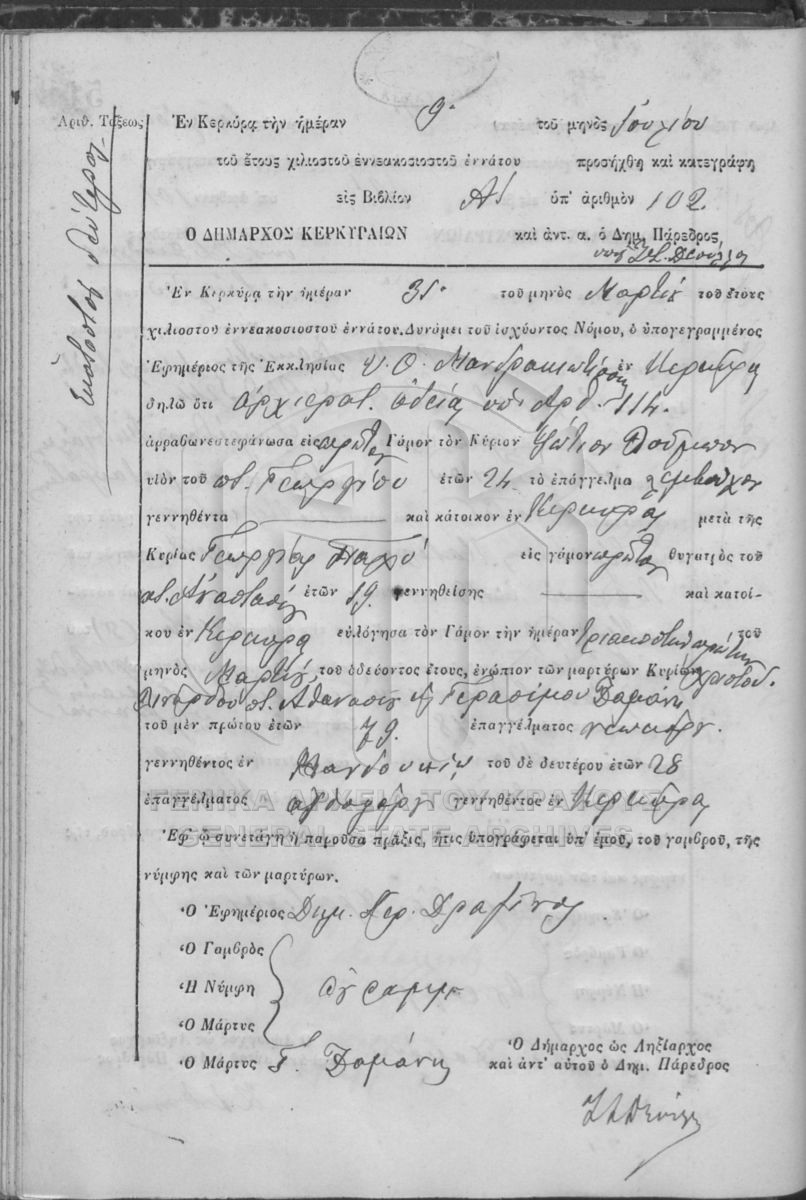 Ἀριθ. Τάξεως
Ἑκατοστὸς δεύτερος
Ἐν Κερκύρᾳ τὴν ἡμέραν 9 τοῦ μηνὸς Ἰουλίου
τοῦ ἔτους χιλιοστοῦ ἐννεακοσιοστοῦ ἐννάτου προσήχθη καὶ κατεγράφη
εἰς Βιβλίον Α' ὑπ' ἀριθμὸν 102
Ο ΔΗΜΑΡΧΟΣ ΚΕΡΚΥΡΑΙΩΝ καὶ ἀντ. α. ὁ Δημ. Πάρεδρος,
Ἐν Κερκύρᾳ τὴν ἡμέραν 31 τοῦ μηνὸς Μαρτίου τοῦ ἔτους
χιλιοστοῦ ἐννεακοσιοστοῦ ἐννάτου. Δυνάμει τοῦ ἰσχύοντος Νόμου, ὁ ὑπογεγραμμένος
Ἐφημέριος τῆς Ἐκκλησίας Υ. Θ. Μανδρακιωτίσσης ἐν Κερκύρᾳ
δηλῶ ὅτι ἀρχιερατ. ἀδείᾳ ὑπ' Ἀρθ. 114.
ἀρραβωνεστεφάνωσα εἰς πρῶτον Γάμον τὸν Κύριον Φώτιον
υἱὸν τοῦ ποτ. Γεωργίου ἐτῶν 24 τὸ ἐπάγγελμα λεμβοῦχον
γεννηθέντα καὶ κάτοικον ἐν Κερκύρᾳ μετὰ τῆς
Κυρίας Γεωργίας εἰς γάμον πρῶτον θυγατρὸς τοῦ
ποτ. Ἀναστασίου ἐτῶν 19 γεννηθείσης καὶ κατοί-
κου ἐν Κερκύρᾳ εὐλόγησα τὸν Γάμον τὴν ἡμέραν τριακοστὴν πρώτην τοῦ
μηνὸς Μαρτίου, τοῦ ὁδεύοντος ἔτους, ἐνώπιον τῶν μαρτύρων Κυρίων Χριστοδ.
ποτ. Ἀθανασίου καὶ Γερασίμου Δαμάνη
τοῦ μὲν πρώτου ἐτῶν 79. ἐπαγγέλματος νεωκόρου
γεννηθέντος ἐν Μανδουκίῳ τοῦ δὲ δευτέρου ἐτῶν 28
ἐπαγγέλματος γεννηθέντος ἐν Κερκύρᾳ
ΓΕΝΙΚΑ ΑΡΧΕΙΑ ΤΟΥ ΚΡΑΤΟΥΣ
GENERAL STATE ARCHIVES
Ἐφ' ᾧ συνετάγη ἡ παροῦσα πρᾶξις, ἥτις ὑπογράφεται ὑπ' ἐμοῦ, τοῦ γαμβροῦ, τῆς
νύμφης καὶ τῶν μαρτύρων.
Ὁ Ἐφημέριος Δημ. Ἱερ.
Ὁ Γαμβρὸς
Ἡ Νύμφη ἀγράμμ.
Ὁ Μάρτυς
Ὁ Μάρτυς Γ. Δαμάνης
Ὁ Δήμαρχος ὡς Ληξίαρχος
καὶ ἀντ' αὐτοῦ ὁ Δημ. Πάρεδρος